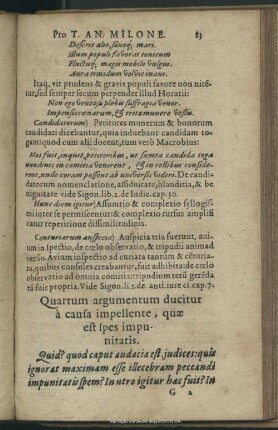 Pro T. AN. MILONE. 83
Deserit alto, sæuoq́; mari.
Illum populi fauorat tonantum
Fluctuq́; magis mobile vulgus.
Aura tumidum voluit inani.
Itaq́, vir prudens & gravis populi favore non nite-
tur, sed semper secum perpendet illud Horatii:
Non ego ventosæ plebis suffragia venor.
Impensis cœnarum, & tritæ munere vestis.
Candidatorum) Petitores munerum & honorum
candidati dicebantur, quia induebant candidam to-
gam quod cum alii docent, tum verò Macrobius:
Mos fuit, inquit, petitoribus, ut sumta candida toga
nundinis in comitia venirent, & in collibus consiste-
rent, unde coram possent ab universis videri. De candi-
datorum nomenclatione, assiduitate, blanditia, & be
nignitate vide Sigon. lib. 2. de Iudic. cap. 30.
Hunc diem igitur) Assumtio & complexio syllogis-
mi inter se permiscentur: & complexio rursus amplifi
catur repetitione dissimilitudinis.
Centuriarum auspicia) Auspicia tria fuerunt, aui-
um inspectio, de cœlo observatio, & tripudii animad
versio. Avium inspectio ad curiata tantùm & céturia-
ta, quibus consules creabantur, fuit adhibita: de cœlo
observatio ad omnia comitia: tripudium terū gerēda
rū fuit propria. Vide Sigon. li. 1. de anti. iure ci. cap. 7.
Quartum argumentum ducitur
à causa impellente, quæ
est spes impu-
nitatis.
Quid? quod caput audaciæ est, judices: quis
ignorat maximam esse illecebram peccandi
impunitatis spem? In utro igitur hæc fuit? In
G 2